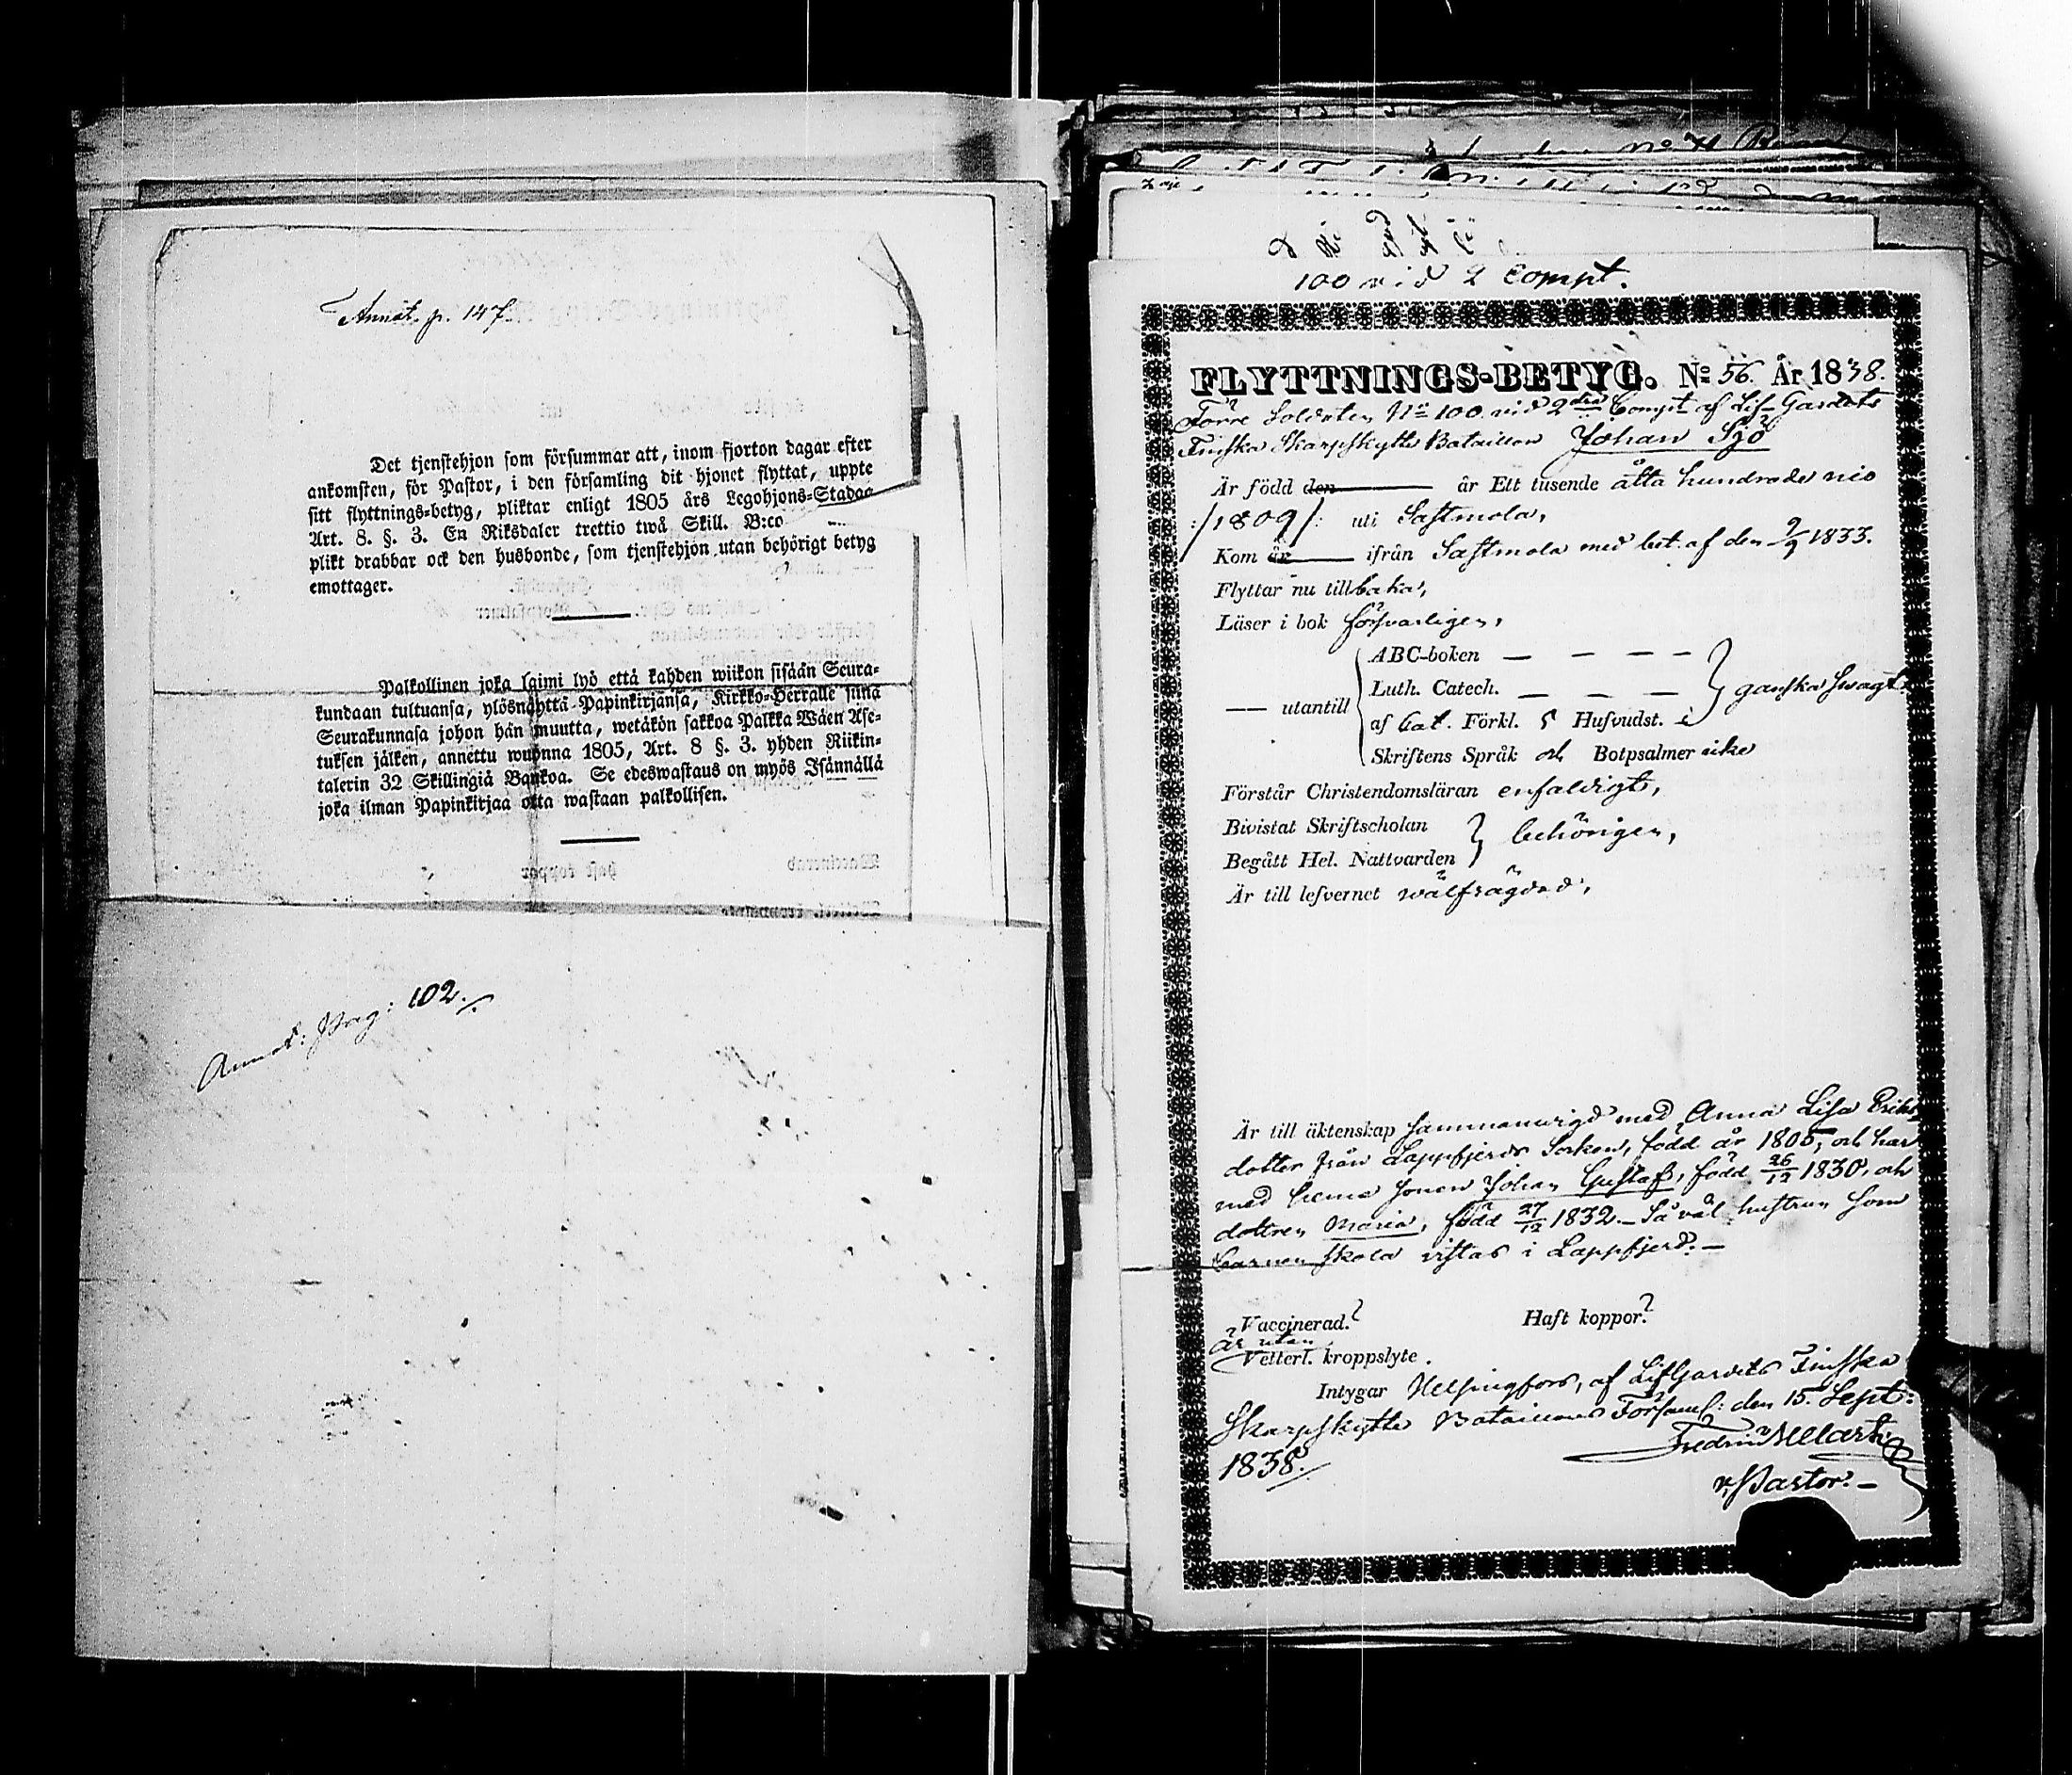 Annot. p. 147
Det tjenstehjon som försummar att, inom fjorton dagar efter
ankomsten, för Pastor, i den församling dit hjonet flyttat, uppte
sitt flyttnings-betyg, pliktar enligt 1805 års Legohjons-Stadga
Art. 8. §. 3. En Riksdaler trettio twå Skill. B:co
plikt drabbar ock den husbonde, som tjenstehjon utan behörigt betyg
emottager.
Palkollinen joka laimi lyö että kahden wiikon sisään Seura-
kundaan tultuansa, ylösnäyttä Papinkirjansa, Kirkko-Herralle siinä
Seurakunnasa johon hän muutta, wetäkön sakkoa Palkka Wäen Ase-
tuksen jälken, annettu wuonna 1805, Art. 8 §. 3. yhden Riikin-
talerin 32 Skillingiä Bankoa. Se edeswastaus on myös Isännällä
joka ilman Papinkirjaa otta wastaan palkollisen.
Annot: Pag: 102.
100 vid 2 Compt.
FLYTTNINGS-BETYG. No 56. År 1838.
Förre Soldaten No 100 vid 2dra Compt af Lif-Gardets
Finska Skarpskytte Bataillon Johan Sjö
Är född den år Ett tusende åtta hundrade nio
:/1809/: uti Sastmola,
Kom år ifrån Sastmola med bet. af den 9/9 1833.
Flyttar nu tillbaka,
Läser i bok försvarligen,
ABC-boken
Luth. Catech.
— utantill ganska svagt
af Cat. Förkl. 5 Hufvudst. i
Skriftens Språk och Botpsalmer icke
Förstår Christendomsläran enfaldigt,
Bivistat Skriftscholan
behörigen,
Begått Hel. Nattvarden
Är till lefvernet wälfrägdad,
Är till äktenskap sammanvigd med Anna Lisa Eriks
dotter från Lappfjerds Socken, född år 1805, och har
med henne sonen Johan Gustaf, född 26/12 1830, och
dottren Maria, född 27/12 1832. – Så väl hustrun som
barnen skola vistas i Lappfjerd. –
Vaccinerad? Haft koppor?
är utan
Vetterl. kroppslyte.
Intygar Helsingfors, af LifGardets Finska
Skarpskytte Bataillons Församl: den 15. Sept:
1838.
v. Pastor. –